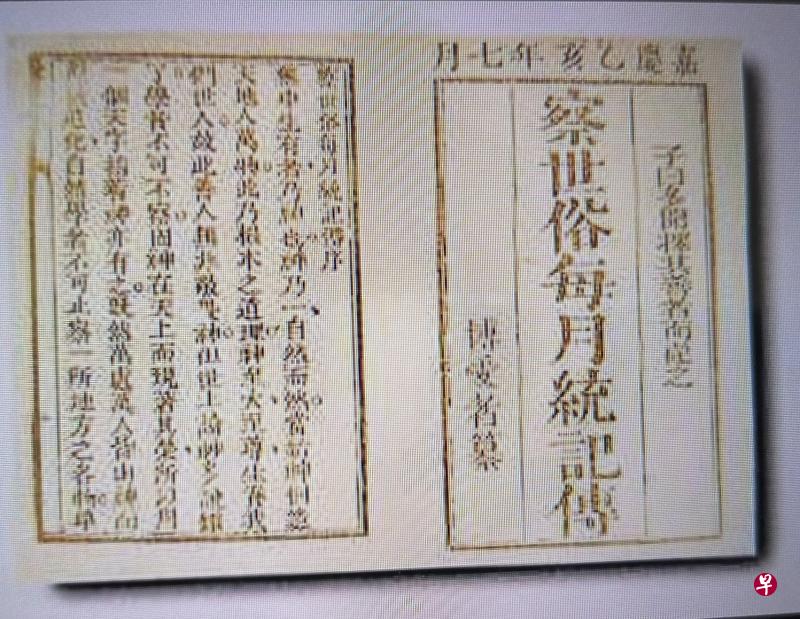 嘉慶乙亥年七月
子曰多聞擇其善者而從之
察世俗每月統記傳
博愛者纂
察世俗每月統記傳序
無中生有者乃神也神乃一自然而然當始神創造
天地人萬物此乃根本之道理神至大至尊生養我
們世人故此善人無非敬畏神但世上論神多說錯
了學者不可不察因神在天上而現著其榮所以用
一個天字指著神亦有之既然萬處萬人皆由神而
被造化自然學者不可止察一所地方之各物單
早